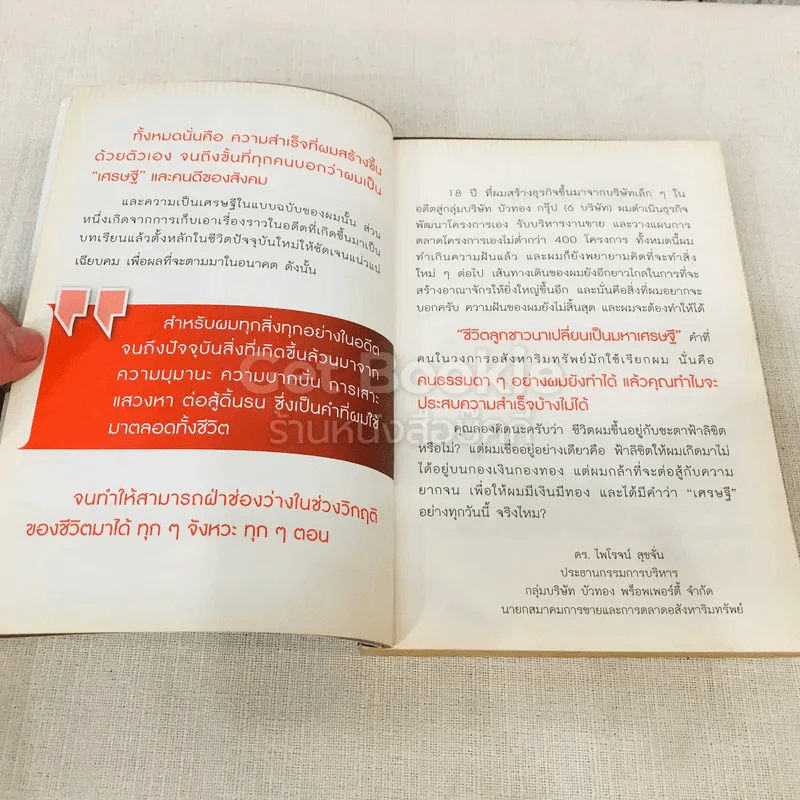 ทั้งหมดนั่นคือ ความสำเร็จที่ผมสร้างขึ้น
ด้วยตัวเอง จนถึงขั้นที่ทุกคนบอกว่าผมเป็น
“เศรษฐี” และคนดีของสังคม
และความเป็นเศรษฐีในแบบฉบับของผมนั้น ส่วน
หนึ่งเกิดจากการเก็บเอาเรื่องราวในอดีตที่เกิดขึ้นมาเป็น
บทเรียนแล้วตั้งหลักในชีวิตปัจจุบันใหม่ให้ชัดเจนแน่วแน่
เฉียบคม เพื่อผลที่จะตามมาในอนาคต ดังนั้น
สำหรับผมทุกสิ่งทุกอย่างในอดีต
จนถึงปัจจุบันสิ่งที่เกิดขึ้นล้วนมาจาก
ความมุมานะ ความบากบั่น การเสาะ
แสวงหา ต่อสู้ดิ้นรน ซึ่งเป็นคำที่ผมใช้
มาตลอดทั้งชีวิต
จนทำให้สามารถฝ่าช่องว่างในช่วงวิกฤติ
ของชีวิตมาได้ ทุก ๆ จังหวะ ทุก ๆ ตอน
18 ปี ที่ผมสร้างธุรกิจขึ้นมาจากบริษัทเล็ก ๆ ใน
อดีตสู่กลุ่มบริษัท บัวทอง กรุ๊ป (6 บริษัท) ผมดำเนินธุรกิจ
พัฒนาโครงการเอง รับบริหารงานขาย และวางแผนการ
ตลาดโครงการเองไม่ต่ำกว่า 400 โครงการ ทั้งหมดนี้ผม
ทำเกินความฝันแล้ว และผมก็ยังพยายามคิดที่จะทำสิ่ง
ใหม่ ๆ ต่อไป เส้นทางเดินของผมยังอีกยาวไกลในการที่จะ
สร้างอาณาจักรให้ยิ่งใหญ่ขึ้นอีก และนั่นคือสิ่งที่ผมอยากจะ
บอกครับ ความฝันของผมยังไม่สิ้นสุด และผมจะต้องทำให้ได้
“ชีวิตลูกชาวนาเปลี่ยนเป็นมหาเศรษฐี” คำที่
คนในวงการอสังหาริมทรัพย์มักใช้เรียกผม นั่นคือ
คนธรรมดา ๆ อย่างผมยังทำได้ แล้วคุณทำไมจะ
ประสบความสำเร็จบ้างไม่ได้
คุณลองคิดนะครับว่า ชีวิตผมขึ้นอยู่กับชะตาฟ้าลิขิต
หรือไม่? แต่ผมเชื่ออยู่อย่างเดียวคือ ฟ้าลิขิตให้ผมเกิดมาไม่
ได้อยู่บนกองเงินกองทอง แต่ผมกล้าที่จะต่อสู้กับความ
ยากจน เพื่อให้ผมมีเงินมีทอง และได้มีคำว่า “เศรษฐี”
อย่างทุกวันนี้ จริงไหม?
ดร. ไพโรจน์ สุขจั่น
ประธานกรรมการบริหาร
กลุ่มบริษัท บัวทอง พร็อพเพอร์ตี้ จำกัด
นายกสมาคมการขายและการตลาดอสังหาริมทรัพย์
Get Bookie
ร้านหนังสือเก็ท